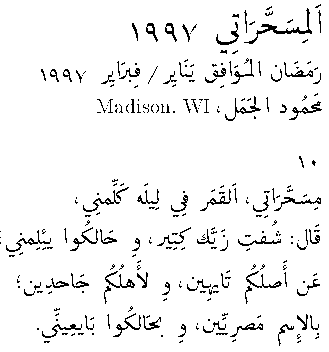 اَلمِسَحَّرَاتِي ١٩٩٧
رَمَضَان المُوَافِق يَنَايِر / فِبرَايِر ١٩٩٧
مَحمُود الجَمَل، Madison, WI
١٠
مِسَحَّرَاتِي، اَلقَمَر فِي لِيلَه كَلَّمنِي،
قَال: شُفتِ زَيَّك كِتِير، وِ حَالكُوا يِيْلِمنِي؛
عَن أَصلُكُم تَايهِين، وِ لأَهلُكُم جَاحدِين؛
بِالإِسِم مَصرِيِّين، وِ بحَالكُوا بَايعِينِّي.